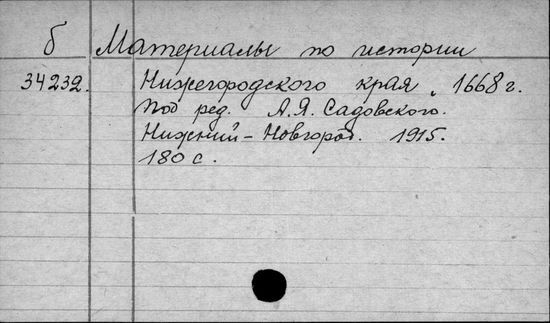 б Материалы по истории
34232. Нижегородского края. 1668 г.
Под ред. А.Я. Садовского.
Нижний-Новгород. 1915.
180 с.